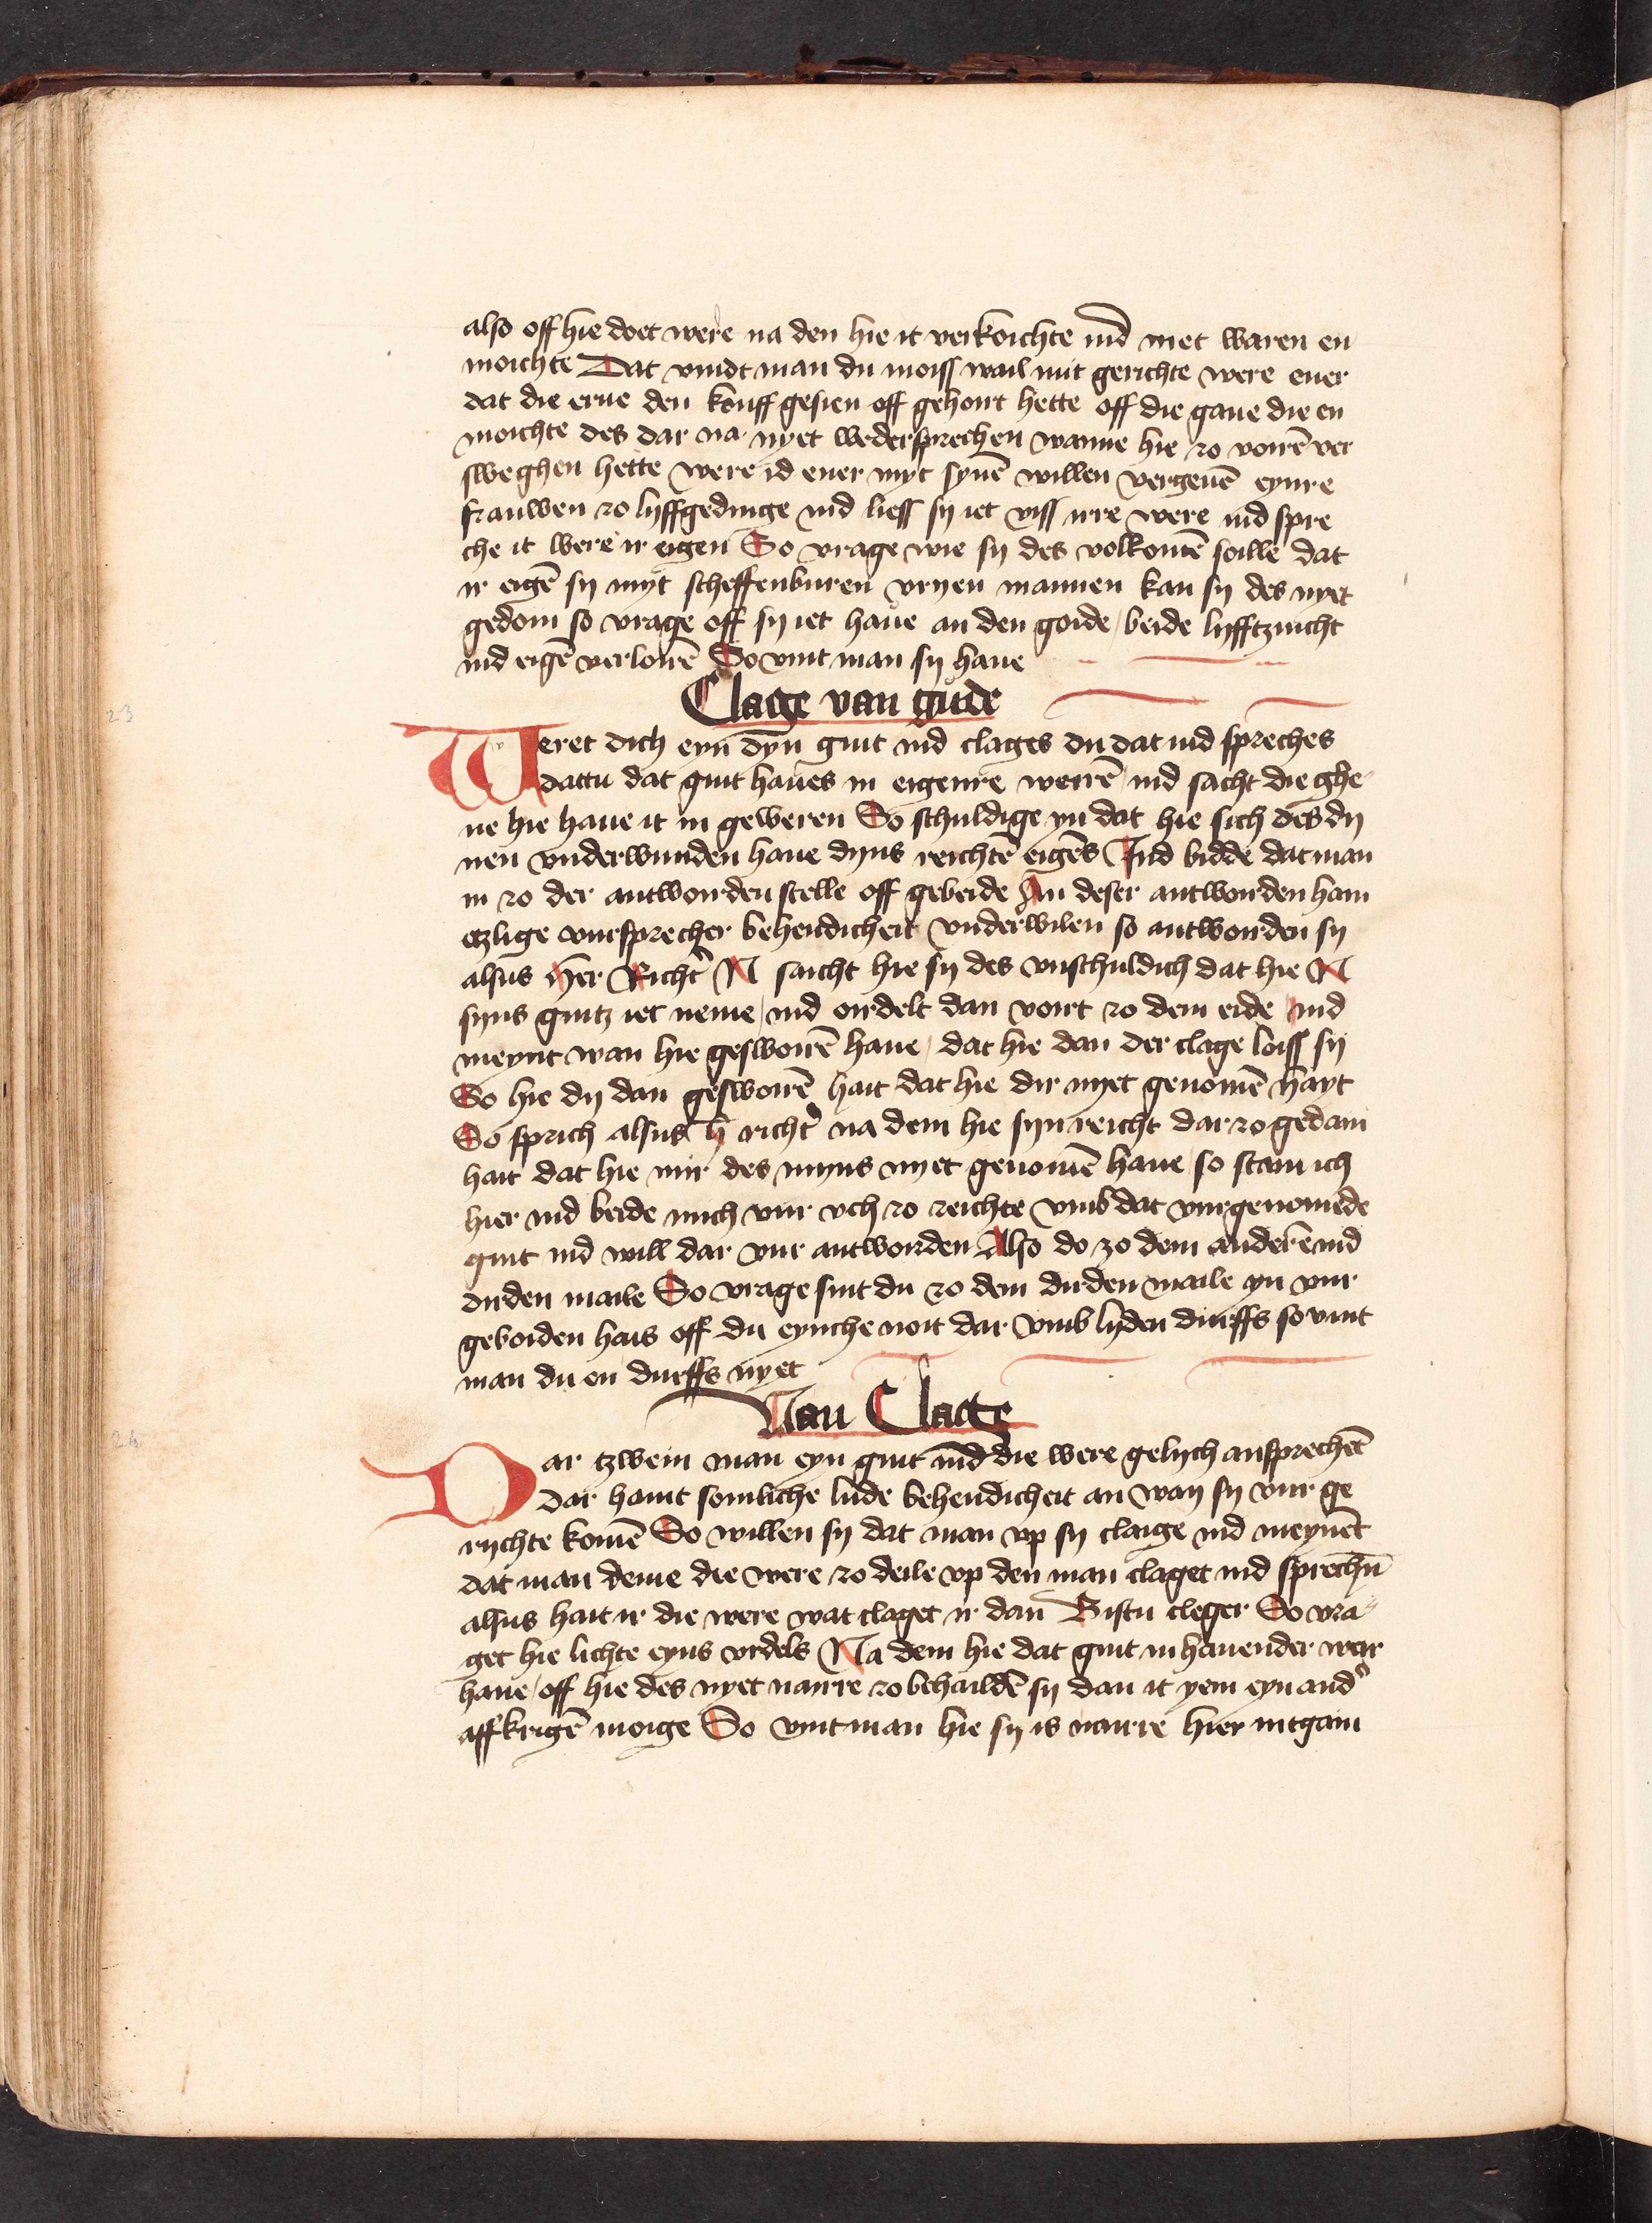 also off hie doet were na den hie it verkoichte ind niet waren en
moichte Dat vindt man du moiss wail mit gerichte were euer
dat die erue den kouff gesien off gehoirt hette off die gaue die en
moichte des dar na nyet wedersprechen wanne hie zo voirē ver
sweghen hette were id euer myt synē willen vergeuē eynre
frauwen zo lyffgedinge ind liess sy iet viss irre were ind spre
che it were ir eigen So vrage wie sy des volkomē soille dat
ir eigē sy myt scheffenburen vryen mannen kan sy des nyet
gedoin so vrage off sy iet haue an den goide beide lyfftzuicht
ind eigē verlorē So vint man sy haue
Clage van gude
Weret dich eyn dyn guit ind clages du dat ind spreches
dattu dat guit haues in eigenre werrē ind sacht die ghe
ne hie haue it in geweren So schuldige yn dat hie sich des dy
nen vnderwunden haue dyns reichtē eigēs Ind bidde dat man
in zo der antworden stelle off gebeide An deser antworden hain
etzlige vursprecher behendicheit vnderwilen so antworden sy
alsus Her Richt' N saicht hie sy des vnschuldich dat hie N
syns guitz iet neme ind oirdelt dan voirt zo dem eide ind
meynt wan hie gesworē haue dat hie dan der clage loiss sy
So hie dy dan gesworē hait dat hie dir nyet genomē hayt
So sprich alsus h richt' na dem hie syn reicht dar zo gedain
hait dat hie mir des myns nyet genomē haue so stain ich
hier ind beide mich vur vch zo reichte vmb dat vurgenomede
guit ind will dar vur antworden Also do zo dem anderē ind
dirden maile So vrage sint du zo dem dirden maile yn vur
geboiden hais off du eynche noit dar vmb lyden durffs so vint
man du en durffs nyet
Van Clage
Dar tzwein man eyn guit ind die were gelych ansprechēt
dar haint somliche lude behendicheit an wan sy vur ge
rychte komē So willen sy dat man vp sy claige ind meynēt
dat man deme die were zo deile vp den man claget ind sprechn̄
alsus hait ir die were wat claget ir dan Bistu cleger So vra
get hie lichte eyns vrdels Na dem hie dat guit in hauender wer
haue off hie des nyet nairre zo behaildē sy dan it yem eyn and'
affkrigē moige So vint man hie sy is nairre hier intgain
23
24